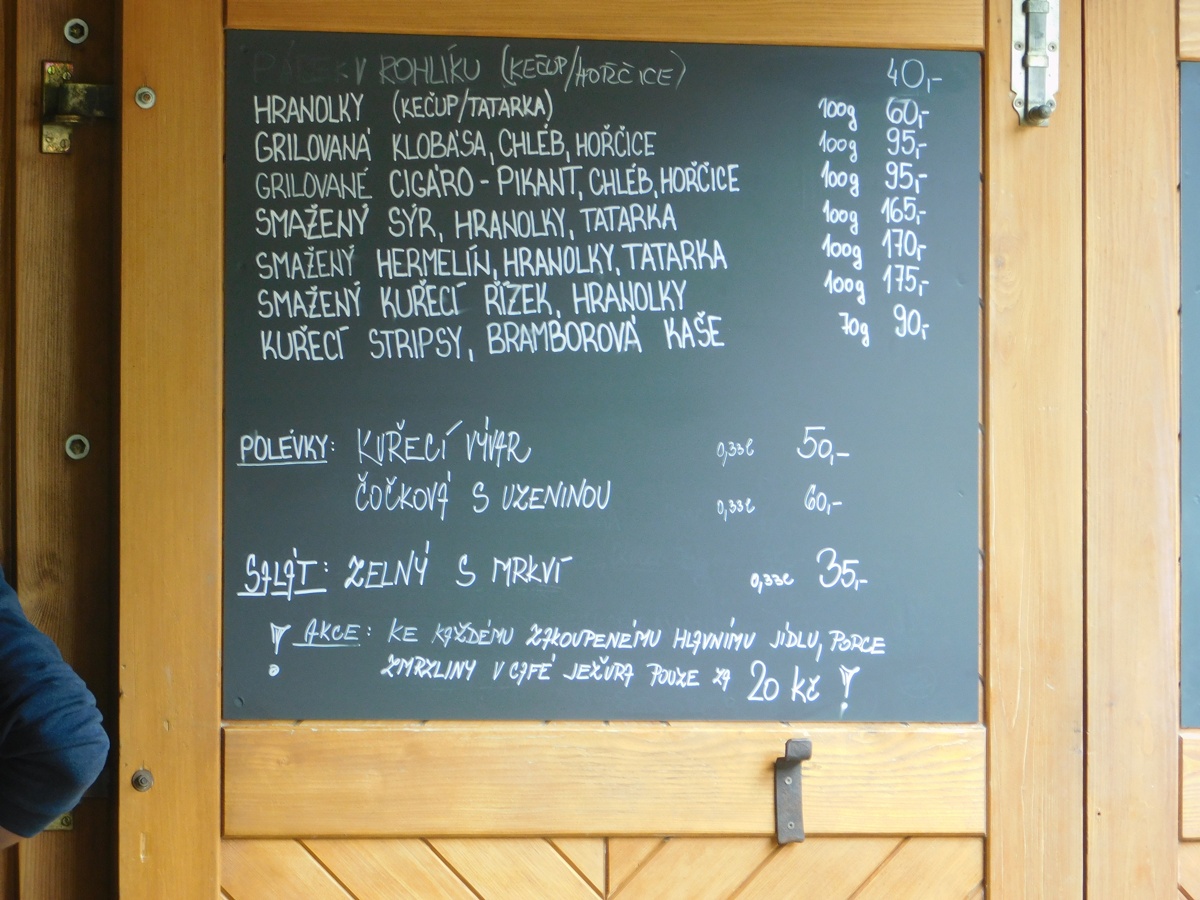 V ROHLÍKU (KEČUP/HOŘČICE) 40,-
HRANOLKY (KEČUP/TATARKA) 100g 60,-
GRILOVANÁ KLOBÁSA, CHLÉB, HOŘČICE 100g 95,-
GRILOVANÉ CIGÁRO - PIKANT, CHLÉB, HOŘČICE 100g 95,-
SMAŽENÝ SÝR, HRANOLKY, TATARKA 100g 165,-
SMAŽENÝ HERMELÍN, HRANOLKY, TATARKA 100g 170,-
SMAŽENÝ KUŘECÍ ŘÍZEK, HRANOLKY 100g 175,-
KUŘECÍ STRIPSY, BRAMBOROVÁ KAŠE 70g 90,-
POLÉVKY: KUŘECÍ VÝVAR 0,33l 50,-
ČOČKOVÁ S UZENINOU 0,33l 60,-
SALÁT: ZELNÝ S MRKVÍ 0,33l 35,-
! AKCE: KE KAŽDÉMU ZAKOUPENÉMU HLAVNÍMU JÍDLU, PORCE
ZMRZLINY V CAFÉ JEŽURA POUZE ZA 20 KČ !